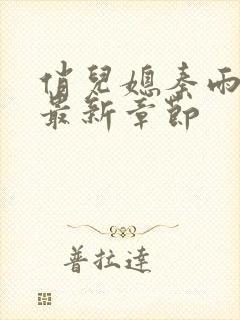 俏兒媳秦雨
最新章節
普拉達